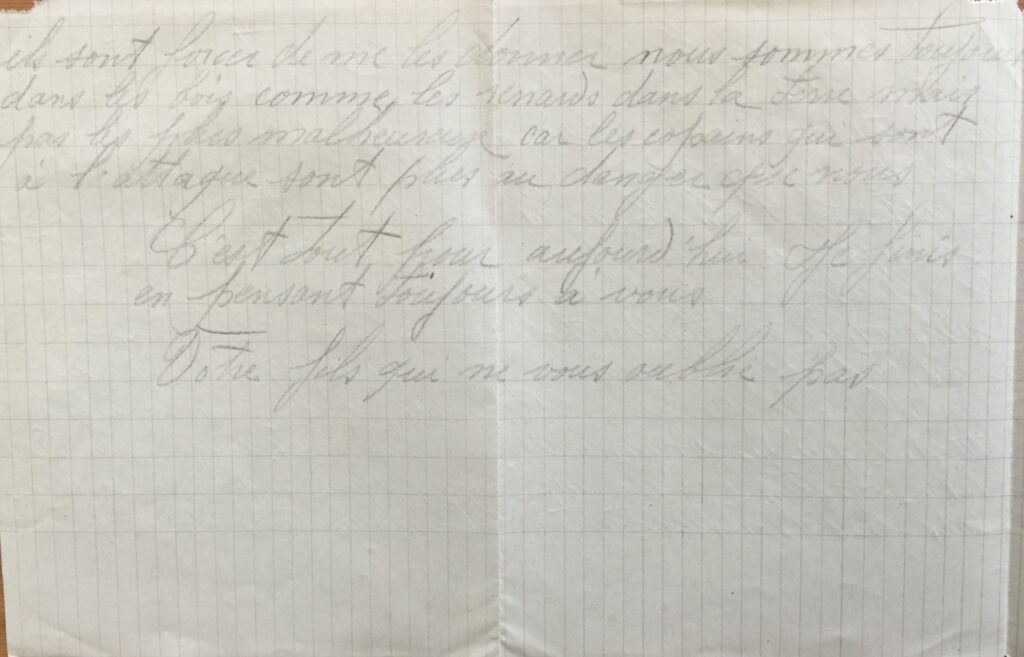 ils sont forcer de me les donner nous sommes toujours
dans les bois comme les renards dans la terre mais
pas les plus malheureuse car les copains qui sont
à l'attaque sont plus au danger que nous
C'est tout pour aujourd'hui Je finis
en pensant toujours à vous
Votre fils qui ne vous oublie pas